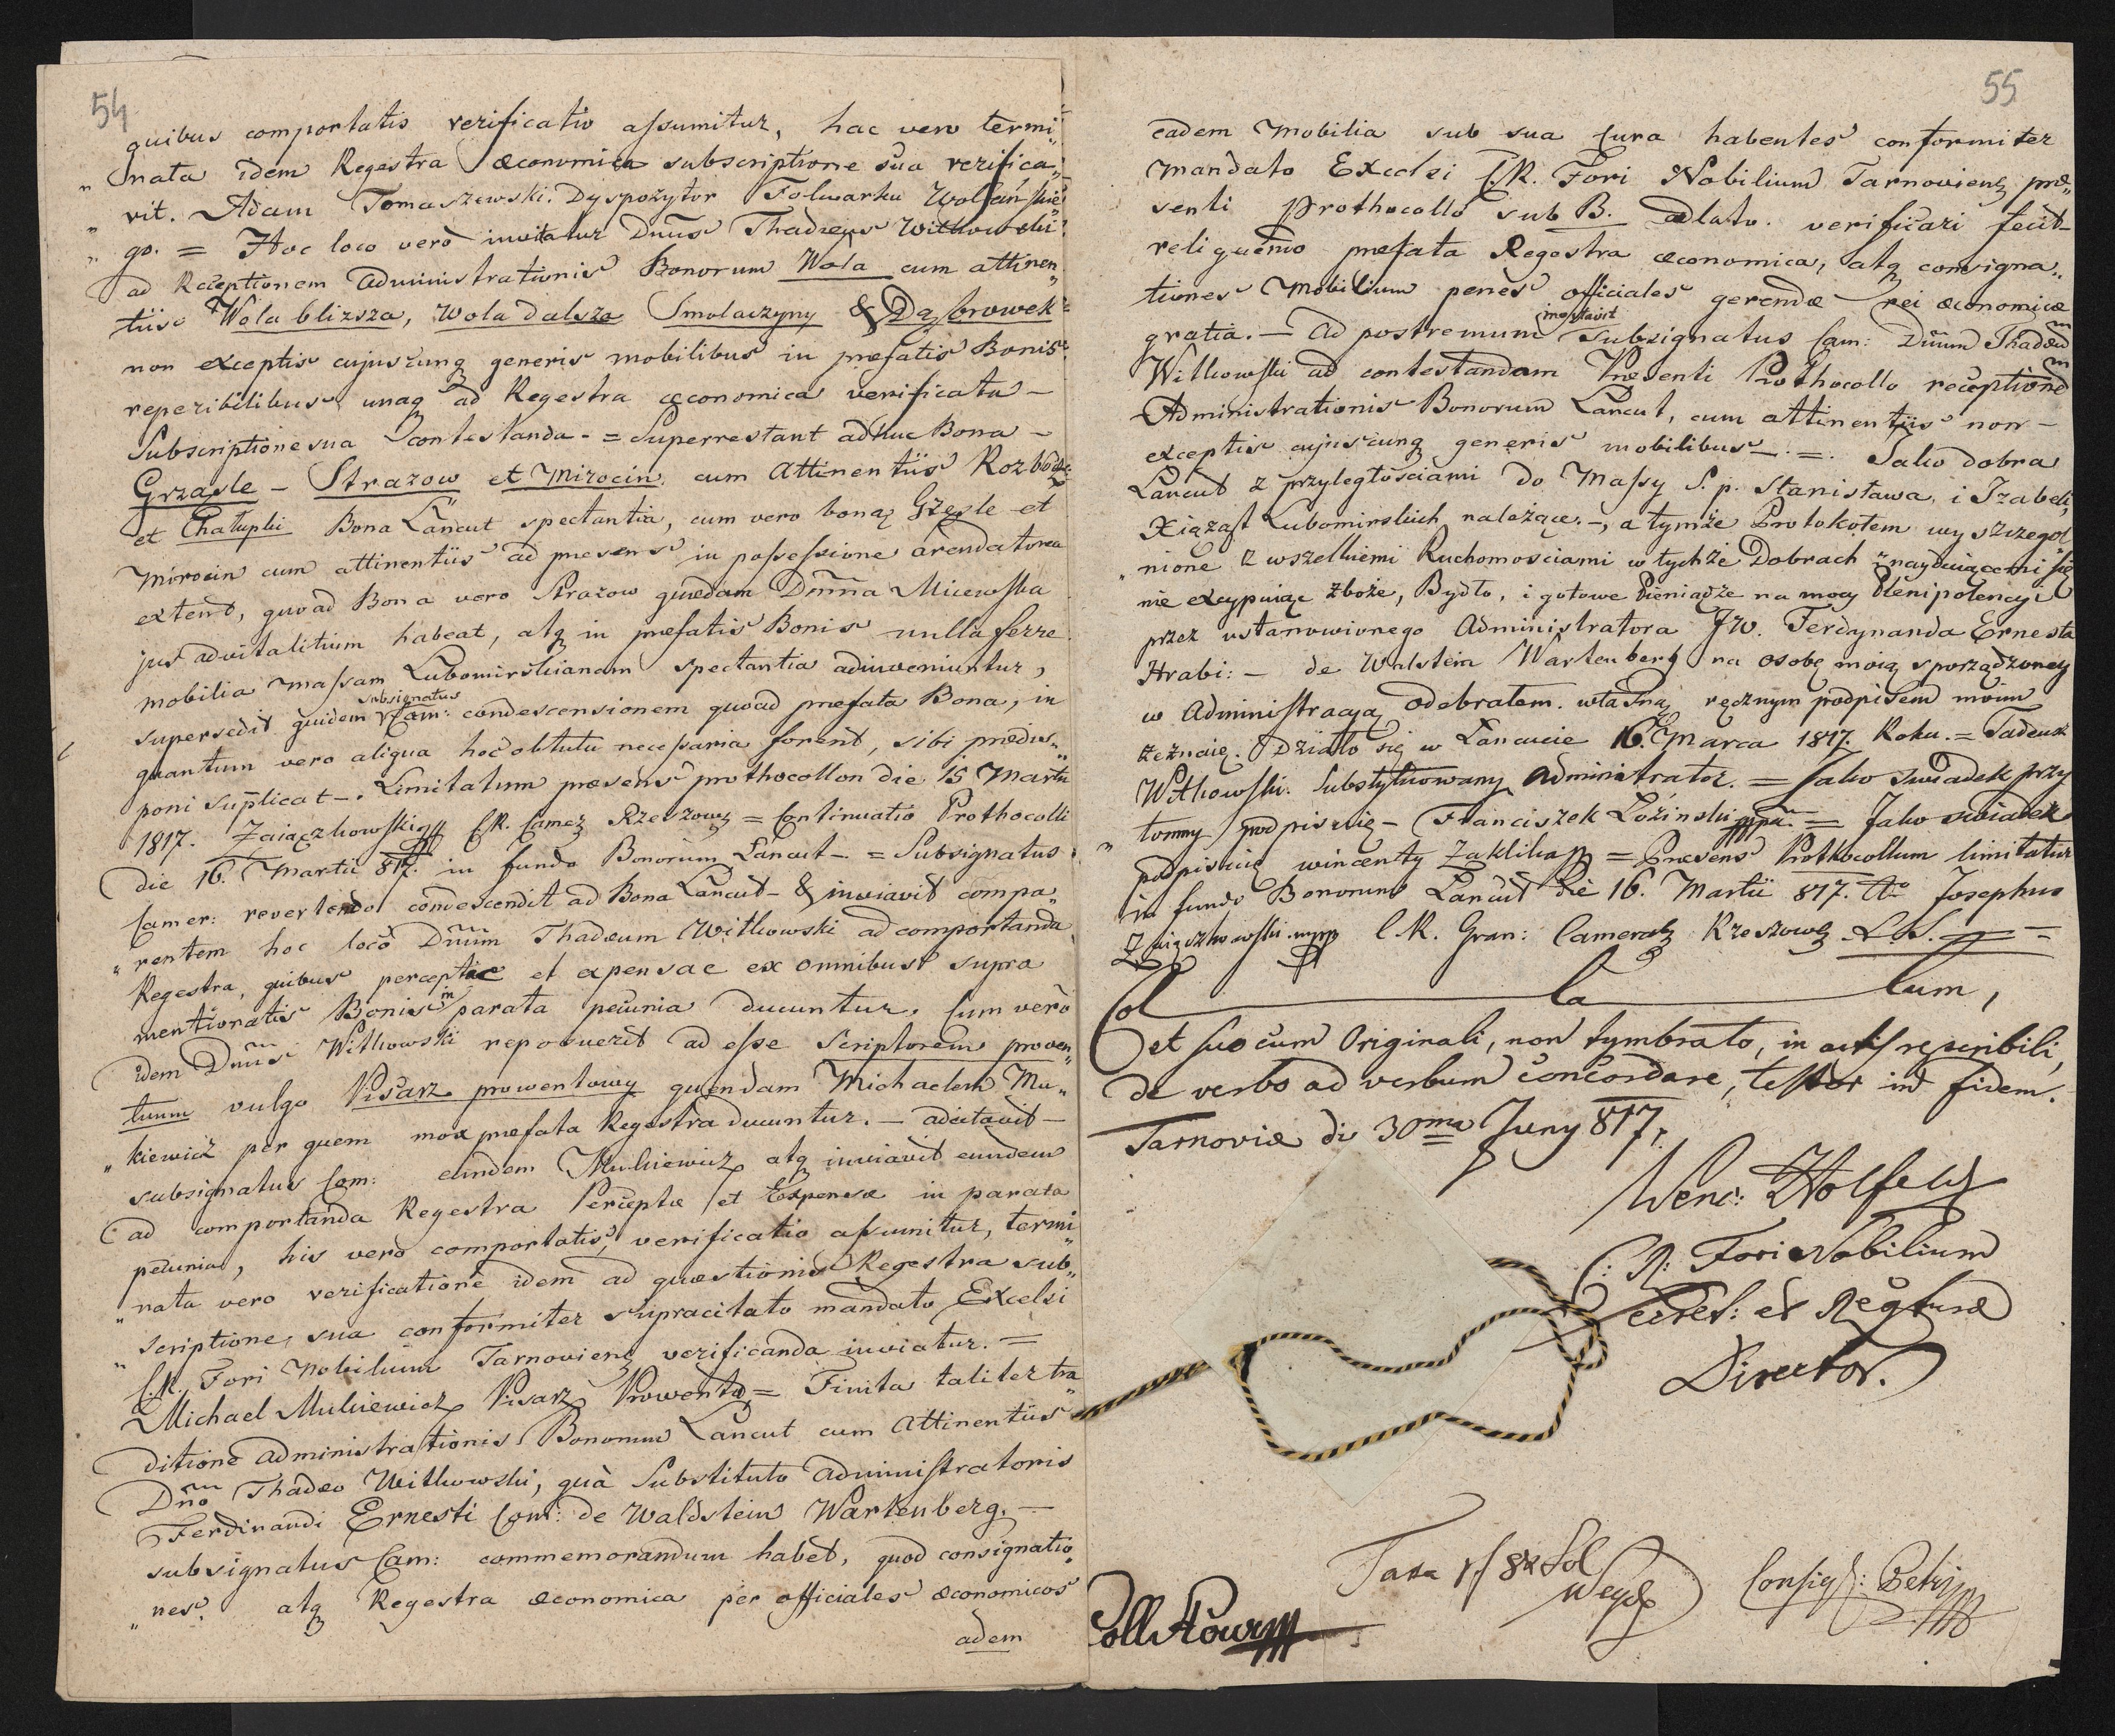 54
quibus comportatis verificatio assumitur, hac vero termi„
„nata idem Regestra œconomica subscriptione sua verifica„
„vit. Adam Tomaszewski Dyspozytor Folwarku Wolańskie„
„go. = Hoc loco verò invitatur Dnus Thadeus Witkowski
ad Receptionem Administrationis Bonorum Wola cum attinen„
tiis Wola blizsza, Wola dalsza Smolarzyny & Dąbrowek
non exceptis cujuscunq generis mobilibus in præfatis Bonis
reperibilibus, unaq ad Regestra œconomica verificata –
Subscriptione sua contestanda. = Superrestant adhuc Bona –
Grzęsle – Strazow et Mirocin cum Attinentiis Rozborz
et Chałupki Bona Lancut spectantia, cum vero bona Grzęsle et
Mirocin cum attinentiis ad præsens in possessione arendatorea
extent, quoad Bona vero Strazow quædam Domna Micewska
jus advitalitium habeat, atq in præfatis Bonis nulla ferre
mobilia massam Lubomirskianam spectantia adinveniuntur,
supersedit quidem subsignatus Cam: condescensionem quoad præfata Bona, in
quantum vero aliqua hoc obtutu necessaria forent, sibi prædis„
poni suplicat –. Limitatum præsens prothocollon die 15 Martii
1817. Zaiączkowski C.R. Camer Rzeszow = Continuatio Prothocolli
die 16. Martii 817. in fundo Bonorum Lancut – = Subsignatus
Camer: revertendo condescendit ad Bona Lancut – & inviavit compa„
„rentem hoc loco Dnum Thadeum Witkowski ad comportanda
Regestra, quibus perceptae et expensae ex omnibus supra
mentionatis Bonis in parata pecunia ducuntur. Cum verò
idem Dnus Witkowski reposuerit ad esse Scriptorem proven„
tuum vulgo Pisarz prowentowy quendam Michaelem Mu„
„kiewicz per quem mox præfata Regestra ducuntur. – adcitavit –
subsignatus Cam: eundem Mukiewicz atq inviavit eundem
ad comportanda Regestra Perceptæ et Expensæ in parata
pecunia, his vero comportatis, verificatio assumitur, termi„
„nata vero verificatione idem ad quæstionis Regestra sub„
„scriptione sua conformiter supracitato mandato Excelsi
C.R. Fori Nobilium Tarnoviens verificanda inviatur. =
Michael Mukiewicz Pisarz Prowento = Finita taliter tra„
ditione administrationis Bonorum Lancut cum Attinentiis
Dno Thadeo Witkowski, quà Substituto administratoris
Ferdinandi Ernesti Com: de Waldstein Wartenberg. –
subsignatus Cam: commemorandum habet, quod consignatio„
„nes. atq Regestra œconomica per officiales œconomicos
adem
55
eadem Mobilia sub sua cura habentes conformiter
mandato Excelsi C.R. Fori Nobilium Tarnoviens præ„
senti Prothocollo sub B. adlato. verificari fecit –
reliquendo præfata Regestra œconomica, atq consigna„
tiones Mobilium penès officiales gerendæ rei œconomicæ
gratia. – Ad postremum Subsignatus Cam: Dnum Thadeum
Witkowski ad contestandam Præsenti Prothocollo receptionem
Administrationis Bonorum Lancut, cum attinentiis non –
exceptis cujuscunq generis mobilibus – . = . Jako dobra
Lancut z przyległościami do Massy S. p. Stanisława, i Izabeli,
Xiążąt Lubomirskich należące. –, a tymże Protokołem wyszczegol
„nione z wszelkiemi Ruchomosciami w tychże Dobrach znayduiącemi się
nie excypuiąc zboże, Bydło, i gotowe Pieniądze na mocy Plenipotencyi
przez ustanowionego Administratora JW. Ferdynanda Ernesta
Hrabi: – de Walstein Wartenberg na osobę moię sporządzoney
w Administracyą odebrałem. własną ręcznym podpisem moim
zeznaię. Działo się w Lancucie 16. Marca 1817. Roku. = Tadeusz
Witkowski. Substytuowany Administrator. = Jako swiadek przy
„tomny podpisuię – Franciszek Łoźinski mpa. = Jako swiadek
podpisuię wincenty Zaklika = Præsens Prothocollum limitatur
in fundo Bonorum Lancut die 16. Martii 817. Josephus
Zaiączkowski mpp C.R. Gran: Cameral Rzeszow. L.S. =
Col la tum,
et suo cum Originali, non tymbrato, in actis reperibili,
de verbo ad verbum concordare, testor in fidem.
Tarnoviæ di 30ma Juny 817.
Wenc: Holfeld
C: R: Fori Nobilium
et Regturæ
Director.
Taxa
Consig: